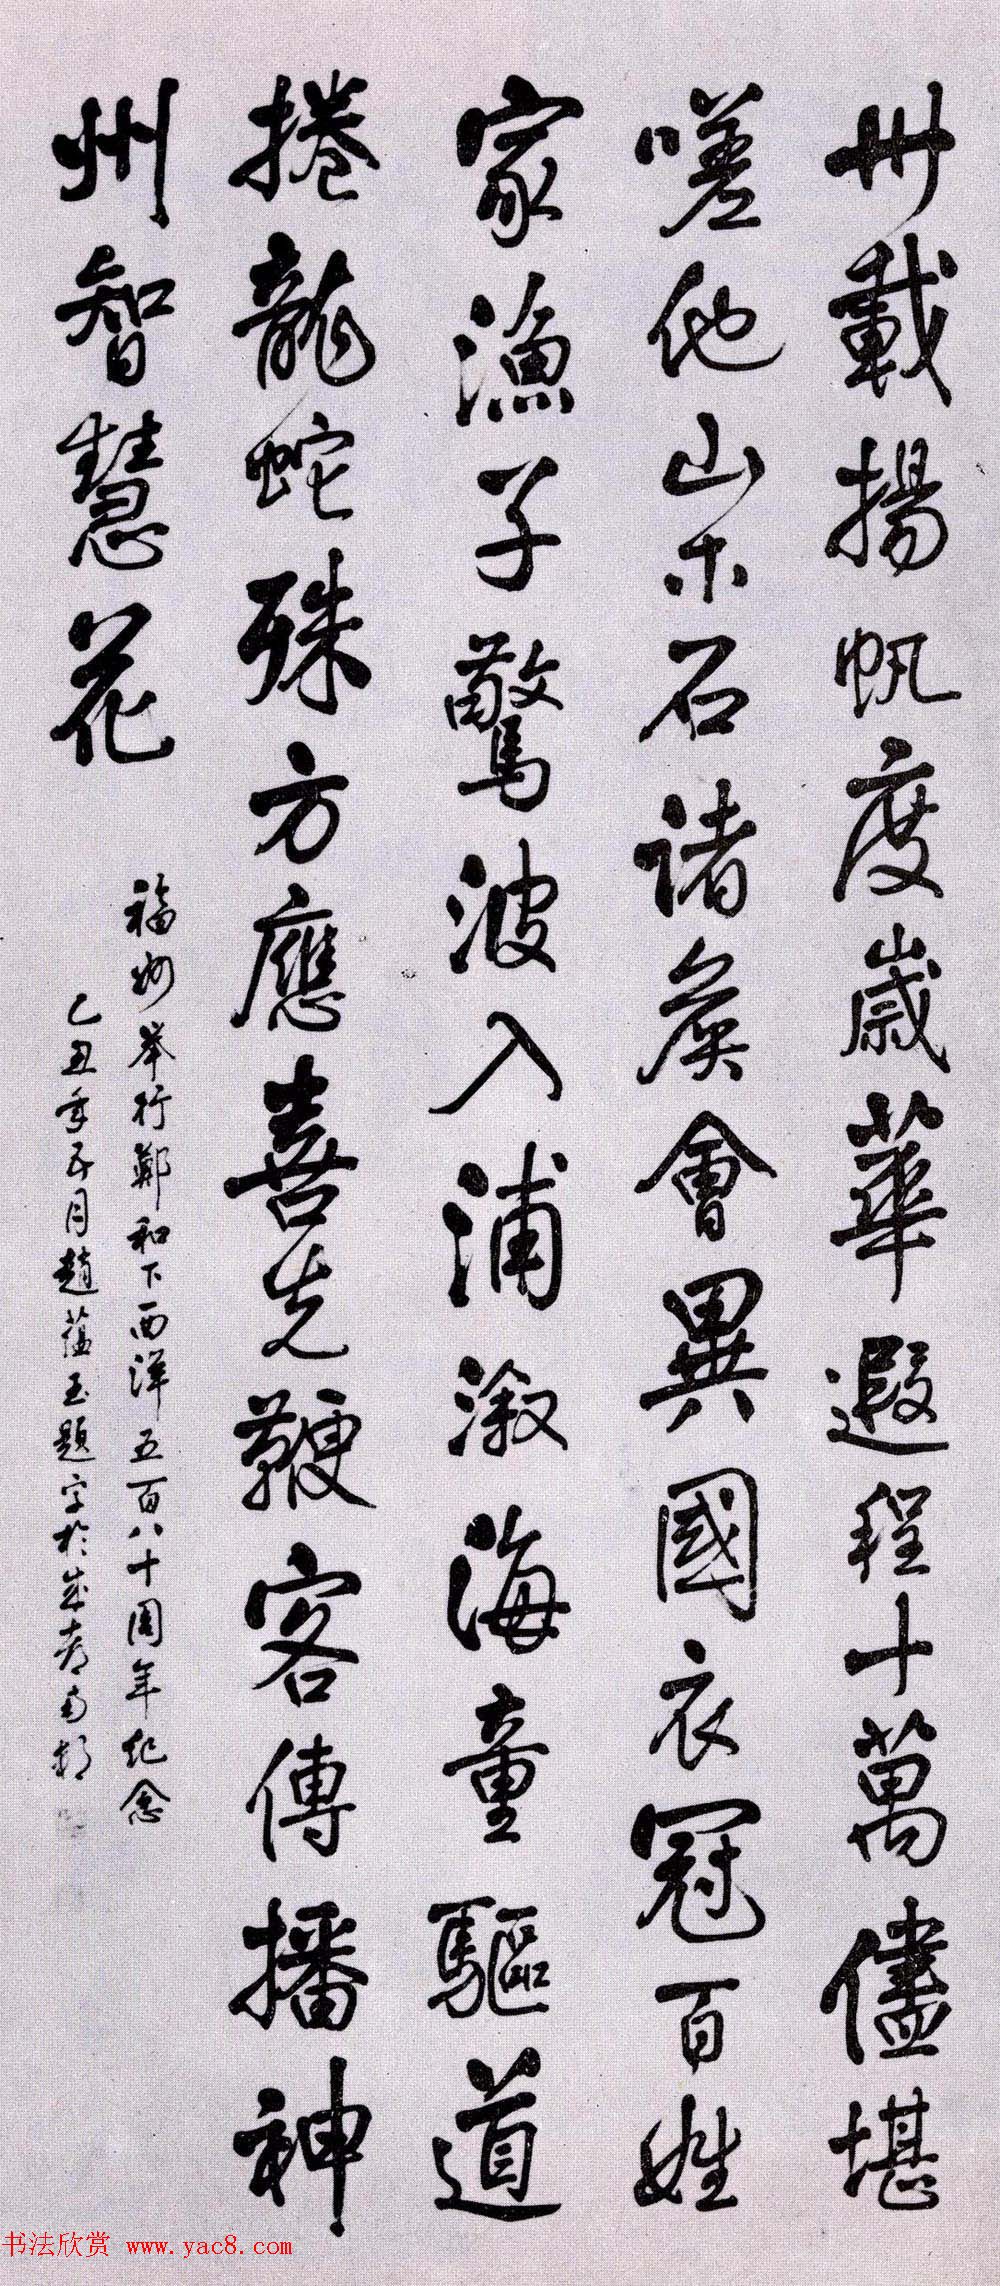 卅載揚帆度歲華遐程十萬儘堪
嗟他山木石諸侯會異國衣冠百姓
家漁子驚波入浦漵海童驅道
捲龍蛇殊方應喜先鞭客傳播神
州智慧花
福州举行鄭和下西洋五百八十周年纪念
乙丑年五月趙蕴玉題字於成都南郊
书法欣赏 www.yac8.com